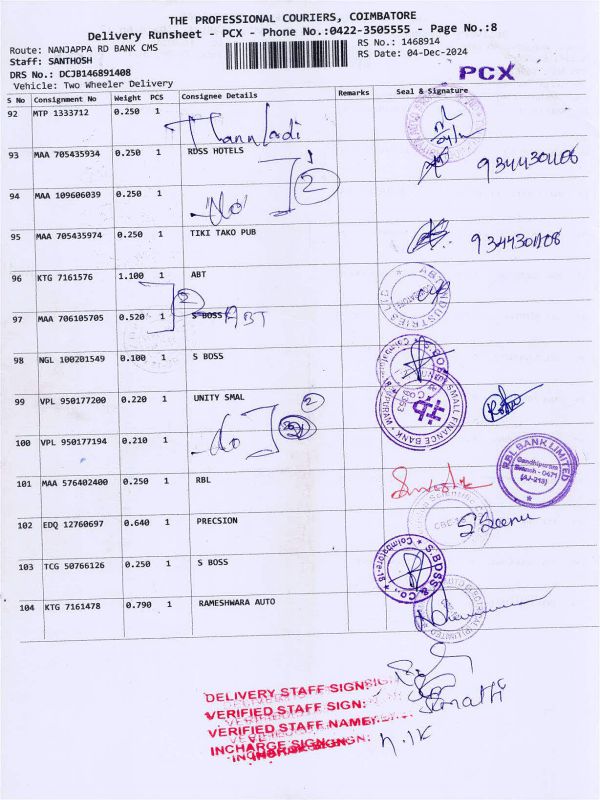 THE PROFESSIONAL COURIERS, COIMBATORE
Delivery Runsheet - PCX - Phone No.:0422-3505555 - Page No.:8
Route: NANJAPPA RD BANK CMS
RS No.: 1468914
Staff: SANTHOSH
RS Date: 04-Dec-2024
DRS No.: DCJB146891408
PCX
Vehicle: Two Wheeler Delivery
S No Consignment No Weight PCS Consignee Details Remarks Seal & Signature
92 MTP 1333712 0.250 1
93 MAA 705435934 0.250 1 RDSS HOTELS 2 9344301108
94 MAA 109606039 0.250 1 do
95 MAA 705435974 0.250 1 TIKI TAKO PUB 9344301108
96 KTG 7161576 1.100 1 ABT
2
97 MAA 706105705 0.520 1 S BOSS ABT
98 NGL 100201549 0.100 1 S BOSS
99 VPL 950177200 0.220 1 UNITY SMAL 2
SMALL FINANCE BANK
100 VPL 950177194 0.210 1 do
RBL BANK LIMITED
Gandhipuram
Branch - 0471
(AJ-213)
101 MAA 576402400 0.250 1 RBL
102 EDQ 12760697 0.640 1 PRECSION S. Seenu
103 TCG 50766126 0.250 1 S BOSS
S.BOSS & Co., Coimbatore-18
104 KTG 7161478 0.790 1 RAMESHWARA AUTO
DELIVERY STAFF SIGN:
VERIFIED STAFF SIGN:
VERIFIED STAFF NAME:
INCHARGE SIGN: